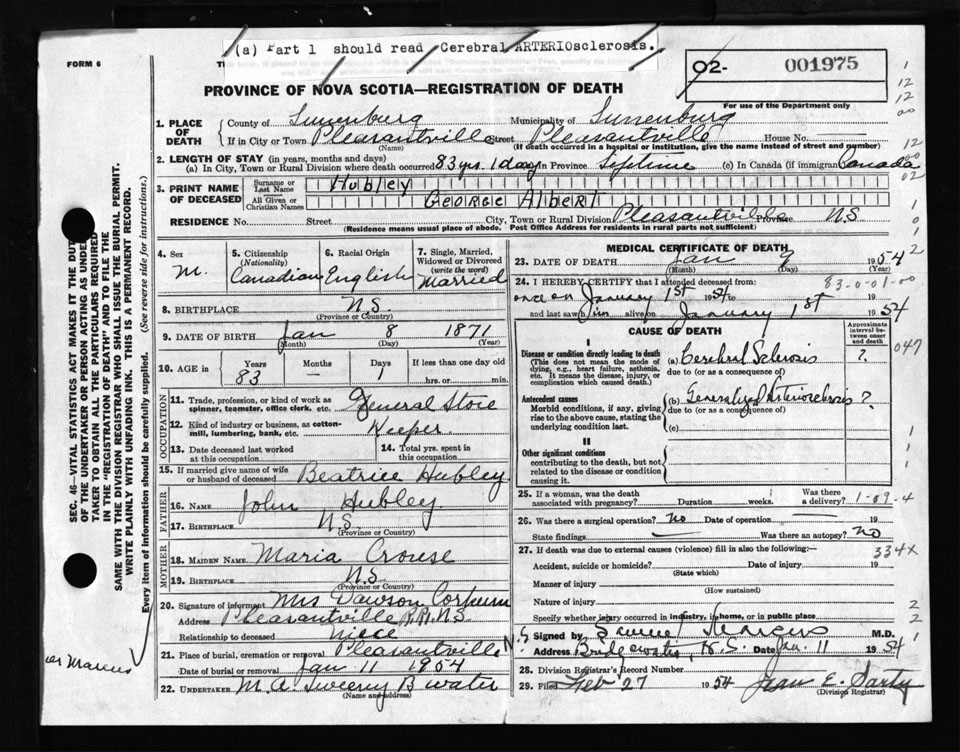 (a) Part 1 should read Cerebral ARTERIOsclerosis.
FORM 6
O2- 001975
PROVINCE OF NOVA SCOTIA—REGISTRATION OF DEATH
For use of the Department only
1. PLACE OF DEATH
County of Lunenburg Municipality of Lunenburg
If in City or Town Pleasantville Street Pleasantville House No.
(Name) (If death occurred in a hospital or institution, give the name instead of street and number)
2. LENGTH OF STAY (in years, months and days)
(a) In City, Town or Rural Division where death occurred 83 yrs. 1 day in Province (c) In Canada (if immigrant) Canada
3. PRINT NAME OF DECEASED
Surname or Last Name Hubley
All Given or Christian Names George Albert
RESIDENCE No. Street City, Town or Rural Division Pleasantville Province N.S
(Residence means usual place of abode. Post Office Address for residents in rural parts not sufficient)
4. Sex M.
5. Citizenship (Nationality) Canadian
6. Racial Origin English
7. Single, Married, Widowed or Divorced (write the word) Married
8. BIRTHPLACE N.S
(Province or Country)
9. DATE OF BIRTH Jan 8 1871
(Month) (Day) (Year)
10. AGE in Years 83 Months – Days If less than one day old hrs. or min.
OCCUPATION
11. Trade, profession, or kind of work as spinner, teamster, office clerk, etc. General Store
12. Kind of industry or business, as cotton-mill, lumbering, bank, etc. Keeper
13. Date deceased last worked at this occupation
14. Total yrs. spent in this occupation
15. If married give name of wife or husband of deceased Beatrice Hubley
FATHER
16. NAME John Hubley
17. BIRTHPLACE N.S.
(Province or Country)
MOTHER
18. MAIDEN NAME Maria Crouse
19. BIRTHPLACE N.S
(Province or Country)
20. Signature of informant Mrs Dawson Corkum
Address Pleasantville R.R. N.S.
Relationship to deceased Niece
21. Place of burial, cremation or removal Pleasantville N.S
Date of burial or removal Jan 11 1954
22. UNDERTAKER M.A. Sweeny B water
(Name and address)
MEDICAL CERTIFICATE OF DEATH
23. DATE OF DEATH Jan 9 1954
(Month) (Day) (Year)
24. I HEREBY CERTIFY that I attended deceased from: 83-0-01-00
once on January 1st 1954 to 19
and last saw him alive on January 1st 1954
CAUSE OF DEATH
Approximate interval between onset and death
I
Disease or condition directly leading to death (a) Cerebral Sclerosis ? 047
(This does not mean the mode of dying, e.g., heart failure, asthenia, etc. It means the disease, injury, or complication which caused death.)
due to (or as a consequence of)
Antecedent causes (b) Generalized Arteriosclerosis ?
Morbid conditions, if any, giving rise to the above cause, stating the underlying condition last.
due to (or as a consequence of)
(c)
II
Other significant conditions
contributing to the death, but not related to the disease or condition causing it.
25. If a woman, was the death associated with pregnancy? Duration weeks. Was there a delivery? 1-09-4
26. Was there a surgical operation? no Date of operation 19
State findings Was there an autopsy? no
27. If death was due to external causes (violence) fill in also the following:— 334x
Accident, suicide or homicide? Date of injury 19
(State which)
Manner of injury
(How sustained)
Nature of injury
Specify whether injury occurred in industry, in home, or in public place
Signed by M.D.
Address Bridgewater, N.S. Date Jan. 11 1954
28. Division Registrar's Record Number
29. Filed Feb 27 1954 Jean E. Sarty
(Division Registrar)
SEC. 46—VITAL STATISTICS ACT MAKES IT THE DUTY
OF THE UNDERTAKER OR PERSON ACTING AS UNDER-
TAKER TO OBTAIN ALL THE PARTICULARS REQUIRED
IN THE "REGISTRATION OF DEATH" AND TO FILE THE
SAME WITH THE DIVISION REGISTRAR WHO SHALL ISSUE THE BURIAL PERMIT.
WRITE PLAINLY WITH UNFADING INK. THIS IS A PERMANENT RECORD.
Every item of information should be carefully supplied. (See reverse side for instructions.)